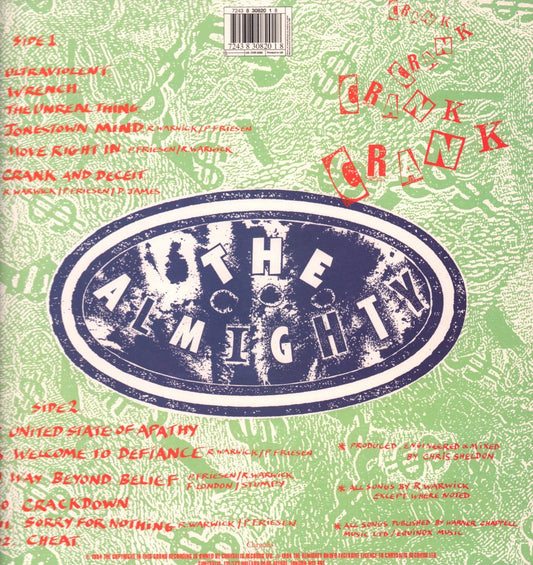 7243 8 30820 1 8
7243 8 30820 1 8
CRANK
CRANK
CRANK
CRANK
SIDE 1
ULTRAVIOLENT
WRENCH
THE UNREAL THING
JONESTOWN MIND R.WARWICK/P.FRIESEN
MOVE RIGHT IN P.FRIESEN/R.WARWICK
CRANK AND DECEIT
R.WARWICK/P.FRIESEN/D.JAMES
THE
ALMIGHTY
SIDE 2
UNITED STATE OF APATHY
WELCOME TO DEFIANCE R.WARWICK/P.FRIESEN
WAY BEYOND BELIEF P.FRIESEN/R.WARWICK
F.LONDON/STUMPY
0 CRACKDOWN
11. SORRY FOR NOTHING R.WARWICK/P.FRIESEN
2. CHEAT
* PRODUCED, ENGINEERED & MIXED
BY CHRIS SHELDON
* ALL SONGS BY R.WARWICK
EXCEPT WHERE NOTED
* ALL SONGS PUBLISHED BY WARNER CHAPPELL
MUSIC LTD/EQUINOX MUSIC
Chrysalis